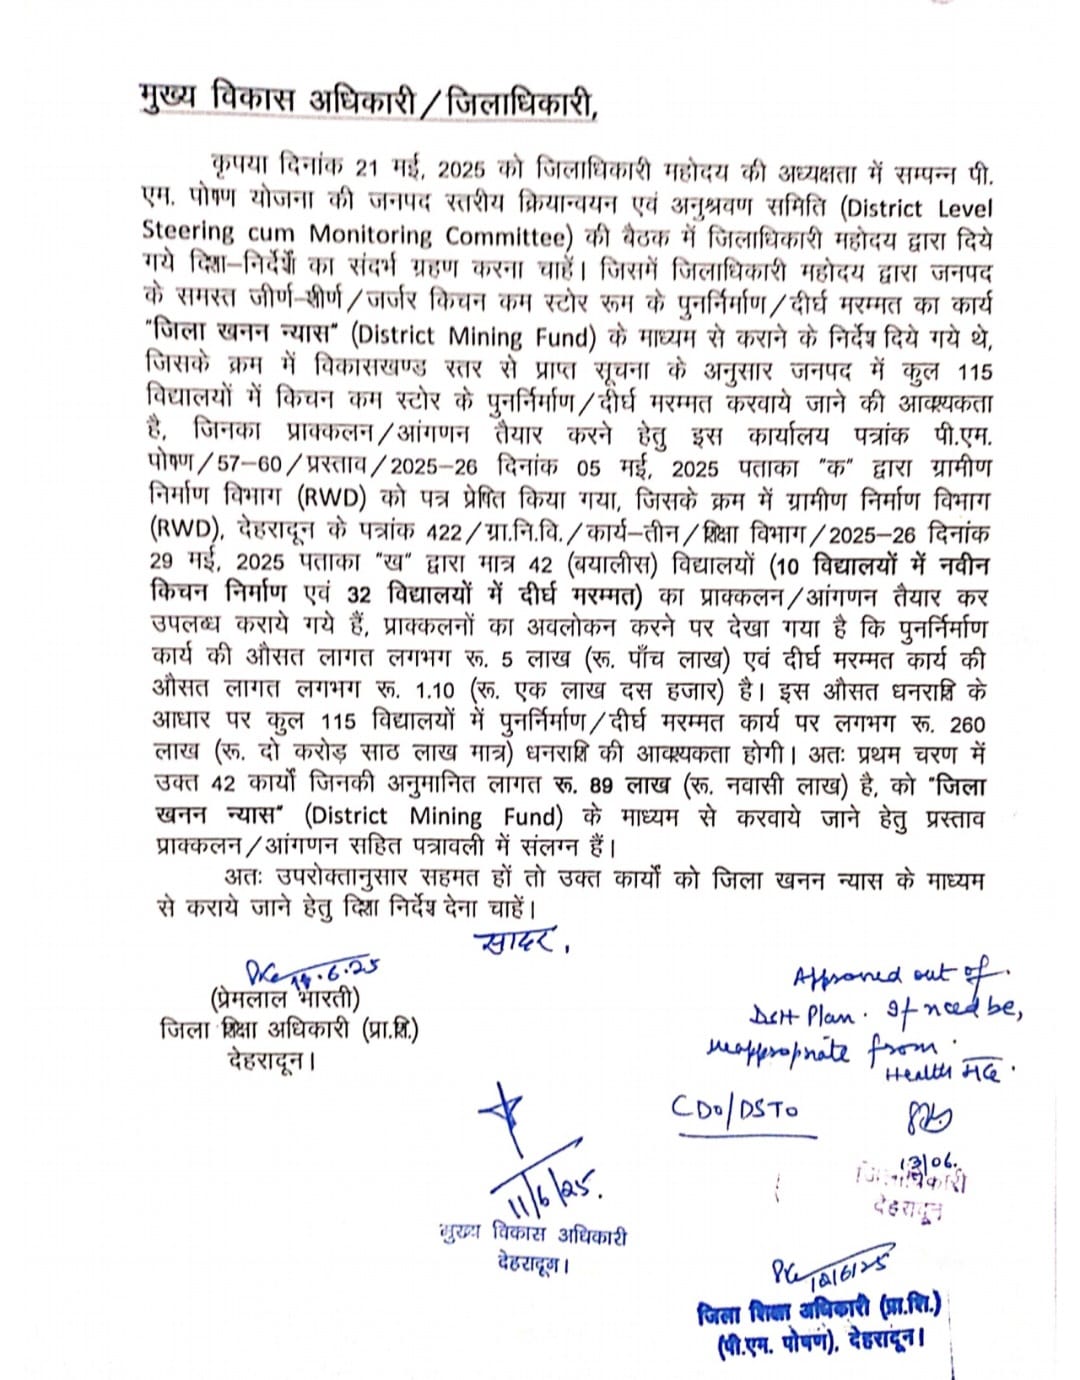 मुख्य विकास अधिकारी/जिलाधिकारी,
कृपया दिनांक 21 मई, 2025 को जिलाधिकारी महोदय की अध्यक्षता में सम्पन्न पी.
एम. पोषण योजना की जनपद स्तरीय क्रियान्वयन एवं अनुश्रवण समिति (District Level
Steering cum Monitoring Committee) की बैठक में जिलाधिकारी महोदय द्वारा दिये
गये दिशा–निर्देशों का संदर्भ ग्रहण करना चाहें। जिसमें जिलाधिकारी महोदय द्वारा जनपद
के समस्त जीर्ण–शीर्ण/जर्जर किचन कम स्टोर रूम के पुनर्निर्माण/दीर्घ मरम्मत का कार्य
"जिला खनन न्यास" (District Mining Fund) के माध्यम से कराने के निर्देश दिये गये थे,
जिसके क्रम में विकासखण्ड स्तर से प्राप्त सूचना के अनुसार जनपद में कुल 115
विद्यालयों में किचन कम स्टोर के पुनर्निर्माण/दीर्घ मरम्मत करवाये जाने की आवश्यकता
है, जिनका प्राक्कलन/आंगणन तैयार करने हेतु इस कार्यालय पत्रांक पी.एम.
पोषण/57–60/प्रस्ताव/2025–26 दिनांक 05 मई, 2025 पताका "क" द्वारा ग्रामीण
निर्माण विभाग (RWD) को पत्र प्रेषित किया गया, जिसके क्रम में ग्रामीण निर्माण विभाग
(RWD), देहरादून के पत्रांक 422/ग्रा.नि.वि./कार्य–तीन/शिक्षा विभाग/2025–26 दिनांक
29 मई, 2025 पताका "ख" द्वारा मात्र 42 (बयालीस) विद्यालयों (10 विद्यालयों में नवीन
किचन निर्माण एवं 32 विद्यालयों में दीर्घ मरम्मत) का प्राक्कलन/आंगणन तैयार कर
उपलब्ध कराये गये हैं, प्राक्कलनों का अवलोकन करने पर देखा गया है कि पुनर्निर्माण
कार्य की औसत लागत लगभग रू. 5 लाख (रू. पाँच लाख) एवं दीर्घ मरम्मत कार्य की
औसत लागत लगभग रू. 1.10 (रू. एक लाख दस हजार) है। इस औसत धनराशि के
आधार पर कुल 115 विद्यालयों में पुनर्निर्माण/दीर्घ मरम्मत कार्य पर लगभग रू. 260
लाख (रू. दो करोड़ साठ लाख मात्र) धनराशि की आवश्यकता होगी। अतः प्रथम चरण में
उक्त 42 कार्यो जिनकी अनुमानित लागत रू. 89 लाख (रू. नवासी लाख) है, को "जिला
खनन न्यास" (District Mining Fund) के माध्यम से करवाये जाने हेतु प्रस्ताव
प्राक्कलन/आंगणन सहित पत्रावली में संलग्न हैं।
अतः उपरोक्तानुसार सहमत हों तो उक्त कार्यों को जिला खनन न्यास के माध्यम
से कराये जाने हेतु दिशा निर्देश देना चाहें।
सादर,
(प्रेमलाल भारती)
जिला शिक्षा अधिकारी (प्रा.शि.)
देहरादून।
Approved out of
Plan. If need be,
reappropriate from
Health मद.
CDO/DSTO
13/06.
जिलाधिकारी
देहरादून
11/6/25.
मुख्य विकास अधिकारी
देहरादून।
12/6/25
जिला शिक्षा अधिकारी (प्रा.शि.)
(पी.एम. पोषण), देहरादून।